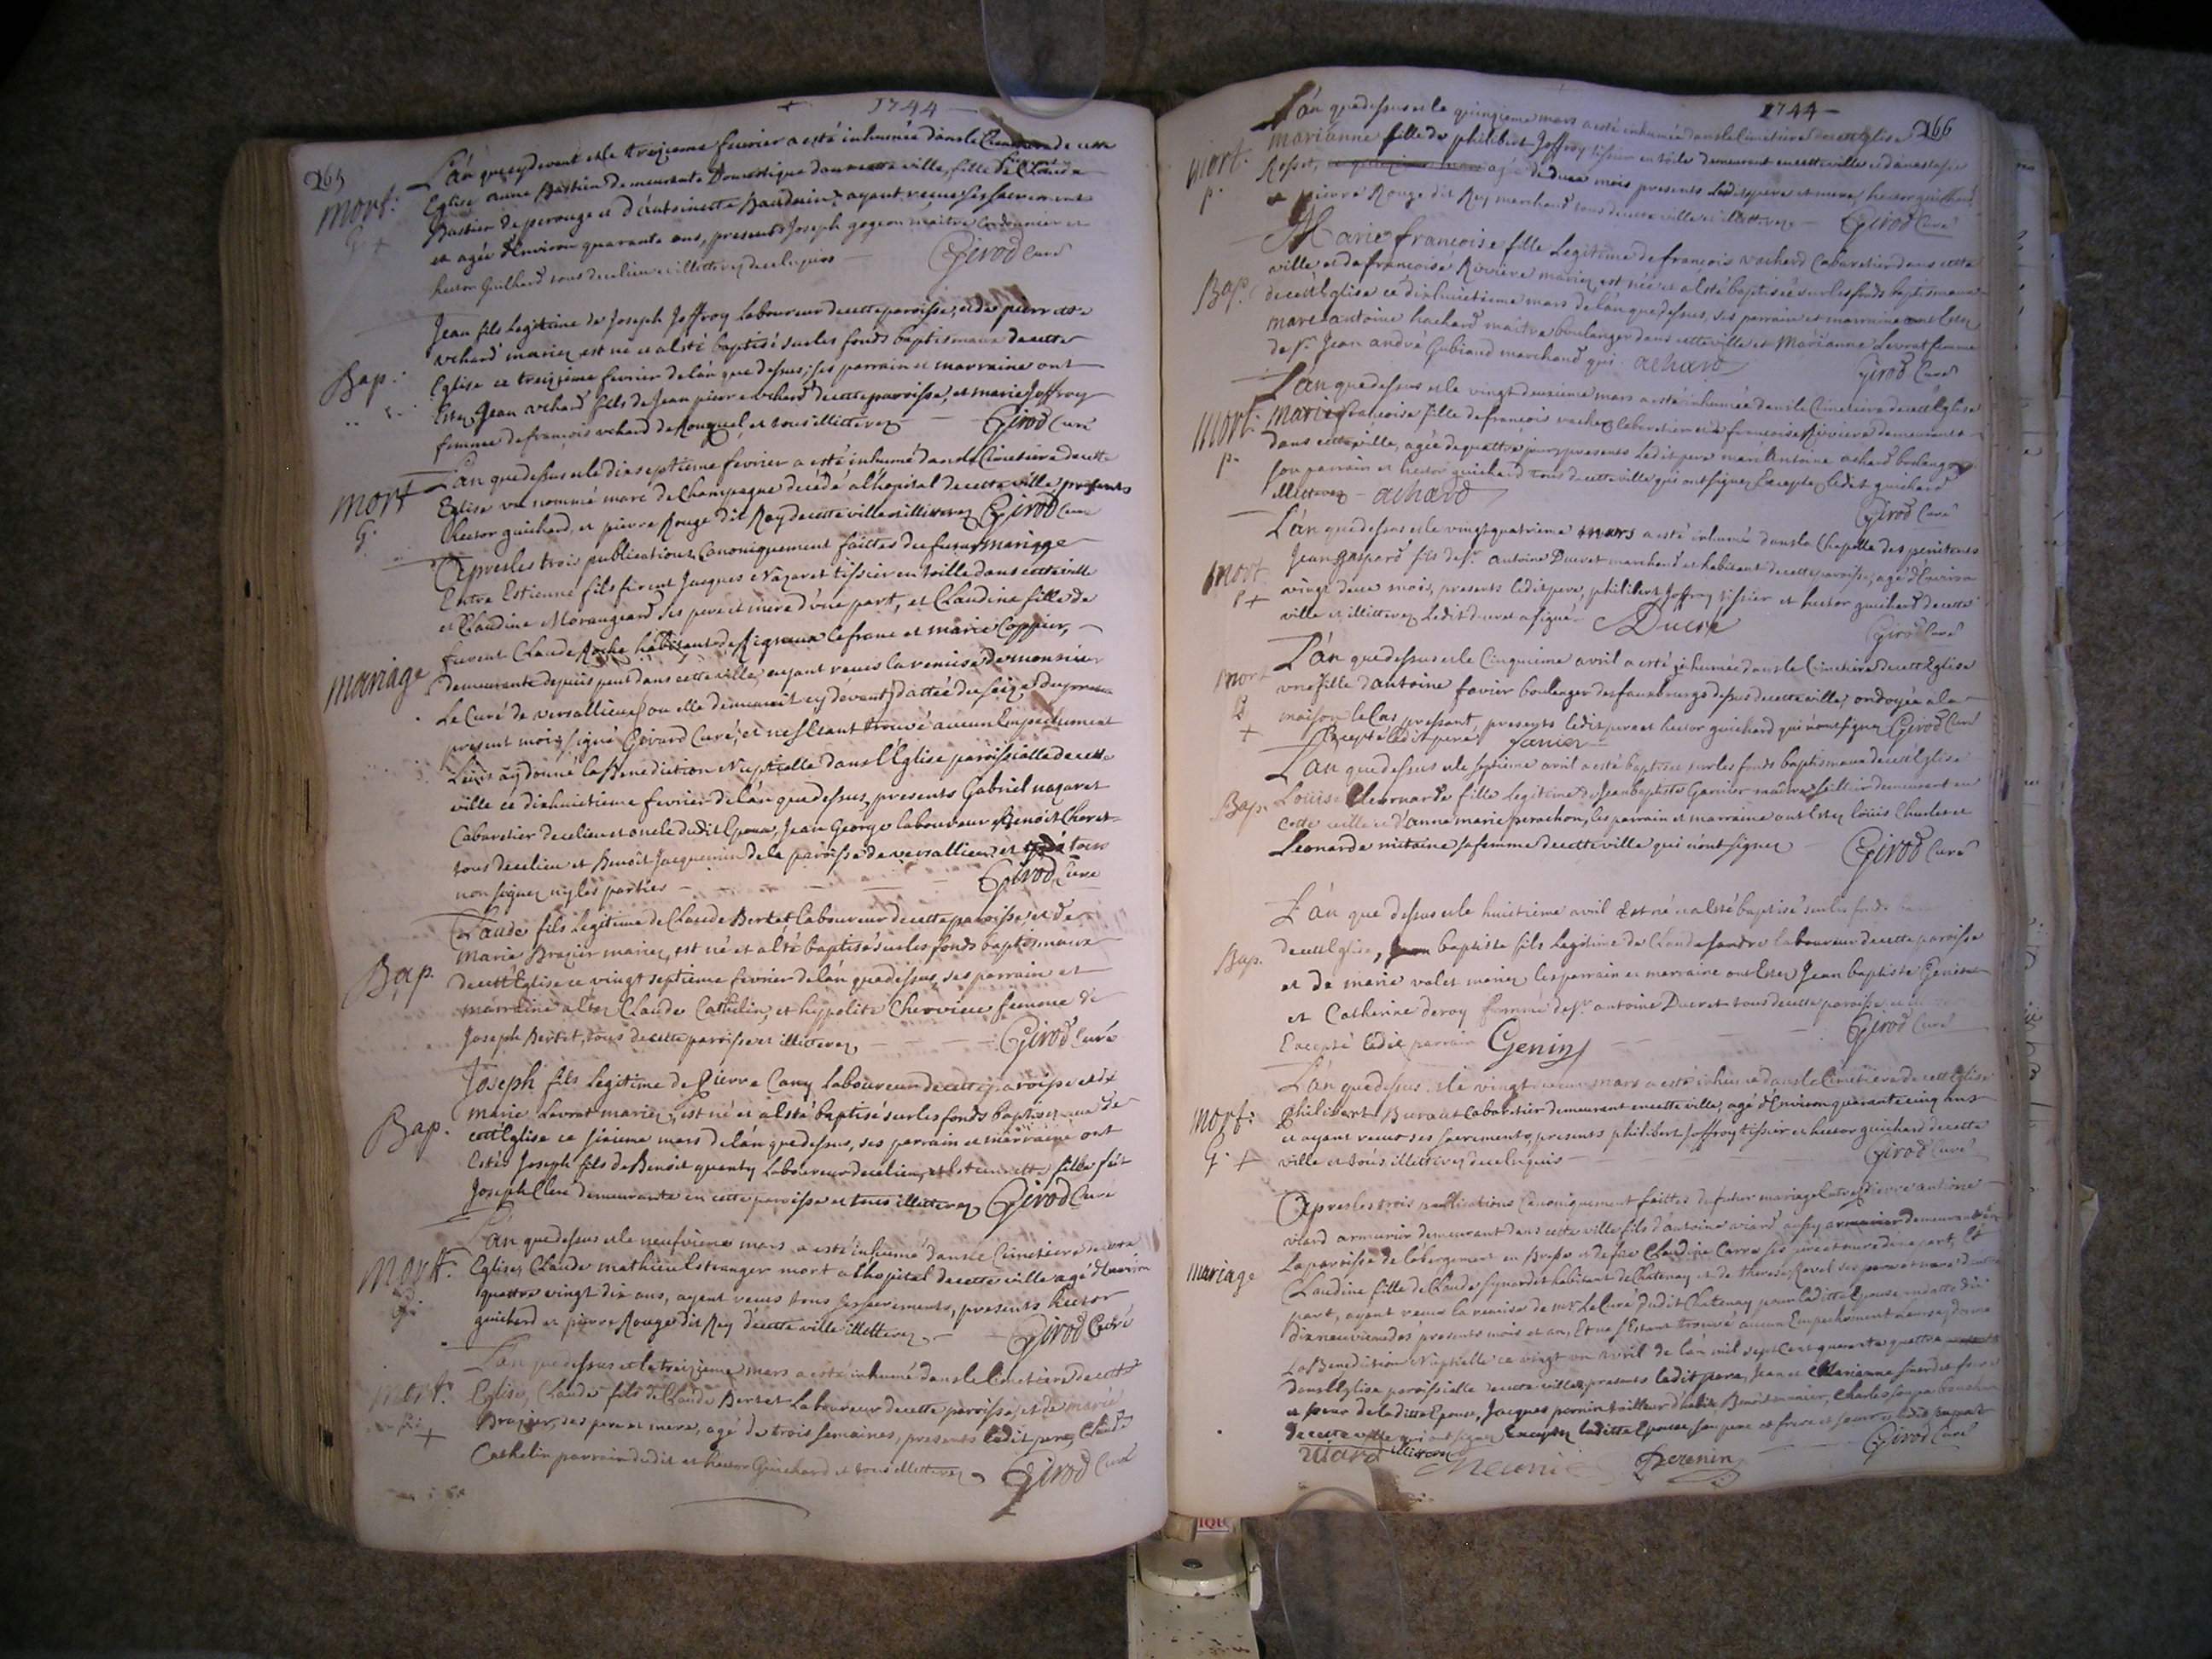 1744
265
mort.
L'an que cy devant et le treizieme fevrier a esté inhumée dans le Cimetiere de cette
Eglise anne Bastien demeurante Domestique dans cette ville, fille de Claude
Bastien de perouge et d'antoinette ayant receu ses sacrements
et agée d'Environ quarante ans, presents Joseph gogeon maître Cordonnier et
hector Guilhard tous de ce lieu et illitterez de ce Enquis
Girod Curé
Bap.
Jean fils Legitime de Joseph Joffroy Laboureur de cette paroisse, et de pierrette
vchard mariez est né et a esté baptisé sur les fonds baptismaux de cette
Eglise ce treizieme fevrier de l'an que dessus, ses parrain et marraine ont
Estez Jean vchard fils de Jean pierre vchard de cette paroisse, et marie Joffroy
femme de françois vchard de et tous illitterez Girod Curé
mort
G.
L'an que dessus et le dix septieme fevrier a esté inhumé dans le Cimetiere de cette
Eglise un nommé marc de Champagne decédé a l'hopital de cette ville presents
hector guichard, et pierre Rouge dit Rey de cette ville illitterez Girod Curé
mariage
Apres les trois publications Canoniquement faittes du futur mariage
Entre Estienne fils feu Jacques Nazaret tissier en toille dans cette ville
et Claudine Morangeard ses pere et mere d'une part, et Claudine fille de
furent Claude Roche habitant de Rigneux le franc et marie Coppier,
demeurante depuis peu dans cette ville, ayant veus la remise de monsieur
Le Curé de versallieux ou elle demeuroit cy devant dattée du seize du present
present mois signé Girard Curé, et ne s'Etant trouvé aucun Empechement
Leurs ay donné la Benediction Nuptialle dans l'Eglise paroissialle de cette
ville ce dixhuitieme fevrier de l'an que dessus, presents Gabriel nazaret
Cabaretier de ce lieu et oncle dudit Epoux, Jean George laboureur Benoit Cheret
tous de ce lieu et Benoit Jacquemin de la paroisse de versallieux et tous
non signez ny les parties
Girod Curé
Bap.
Claude fils Legitime de Claude Bertet Laboureur de cette paroisse et de
Marie Brazier mariez, est né et a esté baptisé sur les fonds baptismaux
de cett'Eglise ce vingt septieme fevrier de l'an que dessus, ses parrain et
marraine Claude Cathelin, et hypolite Chervieu femme de
Joseph Bertet, tous de cette paroisse et illitterez
Girod Curé
Bap.
Joseph fils Legitime de Pierre Cany Laboureur de cette paroisse et de
marie Levrat mariez, est né et a esté baptisé sur les fonds baptismaux de
cett'Eglise ce sixieme mars de l'an que dessus, ses parrain et marraine ont
Estés Joseph fils de Benoit quenty Laboureur de ce lieu, et Estiennette fille feu
Joseph Clerc demeurante en cette paroisse et tous illitterez Girod Curé
Mort.
L'an que dessus et le neufvieme mars a esté inhumé dans le Cimetiere de cette
Eglise, Claude mathieu Estranger mort a l'hopital de cette ville agé d'Environ
quattre vingt dix ans, ayant receus tous ses sacrements, presents hector
guichard et pierre Rouge dit Rey de cette ville illitterez
Girod Curé
Mort.
L'an que dessus et le treizieme mars a esté inhumé dans le Cimetiere de cette
Eglise, Claude fils de Claude Bertet Laboureur de cette paroisse, et de marie
Brazier, ses pere et mere, agé de trois semaines, presents ledit pere, Claude
Cathelin parrain dudit et hector Guichard et tous illitterez
Girod Curé
1744
266
mort.
p.
L'an que dessus et le quinzieme mars a esté inhumée dans le Cimetiere de cett'Eglise
marianne fille de philibert Joffroy tissier en toile demeurant en cette ville et d'anastasie
Rosset, agé de deux mois presents Ledit pere et mere, hector guichard
et pierre Rouge dit Rey marchand tous de cette ville et illitterez
Girod Curé
Bap.
Marie françoise fille Legitime de françois vachard Cabaretier dans cette
ville et de françoise Riviere mariez, est née et a esté baptisée sur les fonds baptismaux
de cett'Eglise ce dixhuitieme mars de l'an que dessus, ses parrain et marraine ont Estez
marc antoine hachard maître boulanger dans cette ville et Marianne Levrat femme
de Sr Jean andré Gubiand marchand qui achard
Girod Curé
Mort.
p.
L'an que dessus et le vingt deuxieme mars a esté inhumée dans le Cimetiere de cett'Eglise
Marie françoise fille de françois Cabaretier et de françoise Riviere demeurante
dans cette ville, agée de quattre jours presents Ledit pere marc Antoine achard boulanger
son parrain et hector guichard tous de cette ville qui ont signez Exceptez ledit guichard
illitterez achard
Girod Curé
mort
p +
L'an que dessus et le vingt quatrieme mars a esté inhumé dans la Chapelle des penitents
Jean gaspard fils de Sr. antoine Ducret marchand et habitant de cette paroisse, agé d'Environ
vingt deux mois, presents ledit pere, philibert Joffroy tissier et hector guichard de cette
ville et illitterez Ledit ducret a signé Ducré
Girod Curé
mort
+
L'an que dessus et le Cinquieme avril a esté inhumée dans le Cimetiere de cett'Eglise
une fille d'antoine favier boulanger des fauxbourgs dessus de cette ville, ondoyée a la
maison le Cas pressant, presents ledit pere et hector guichard qui n'ont signez Girod Curé
Excepté ledit pere favier
Bap.
L'an que dessus et le septieme avril a esté baptisée sur les fonds baptismaux de cett'Eglise
Louise Leonarde fille Legitime de Jean baptiste Garnier maître demeurant en
cette ville et d'anne marie perachon, les parrain et marraine ont Estez Louis Charles et
Leonarde mitaine sa femme de cette ville qui n'ont signez
Girod Curé
Bap.
L'an que dessus et le huitieme avril Est né et a esté baptisé sur les fonds
de cett'Eglise, Jean baptiste fils Legitime de Claude Sandre laboureur de cette paroisse
et de marie valet mariez les parrain et marraine ont Estez Jean baptiste Genin
et Catherine deroy femme de Sr. antoine Ducret tous de cette paroisse, et
Excepté ledit parrain Genin
Girod Curé
Mort.
G. +
L'an que dessus et le vingt mars a esté inhumé dans le Cimetiere de cett'Eglise
philibert Cabaretier demeurant en cette ville, agé d'Environ quarante cinq ans
et ayant receus ses sacrements, presents philibert Joffroy tissier et hector guichard de cette
ville et tous illitterez de ce Enquis
Girod Curé
mariage
Apres les trois publications Canoniquement faittes du futur mariage Entre Pierre antoine
viard armurier demeurant dans cette ville fils d'antoine viard aussy armurier demeurant en
La paroisse de l'abergement en Bresse et de feüe Claudine Carra ses pere et mere d'une part, Et
Claudine fille de Claude habitant de Chatenay et de therese Ravel ses pere et mere d'autre
part, ayant receus la remise de mr. Le Curé dudit Chatenay pour laditte Epouse en datte du
dixneuvieme des presents mois et an, Et ne s'Etant trouvé aucun Empechement Leurs ay donné
La Benediction Nuptialle ce vingt un avril de l'an mil sept cent quarante quattre
dans l'Eglise paroissialle de cette ville, presents ledit pere, Jean et Marianne frere
et soeur de laditte Epouse, Jacques pernin tailleur d'habits Benoit meunier, Charles
de cette ville qui ont signez Exceptez laditte Epouse, son pere et frere et soeur
illitterez
Girod Curé
viard Meunie Pernin